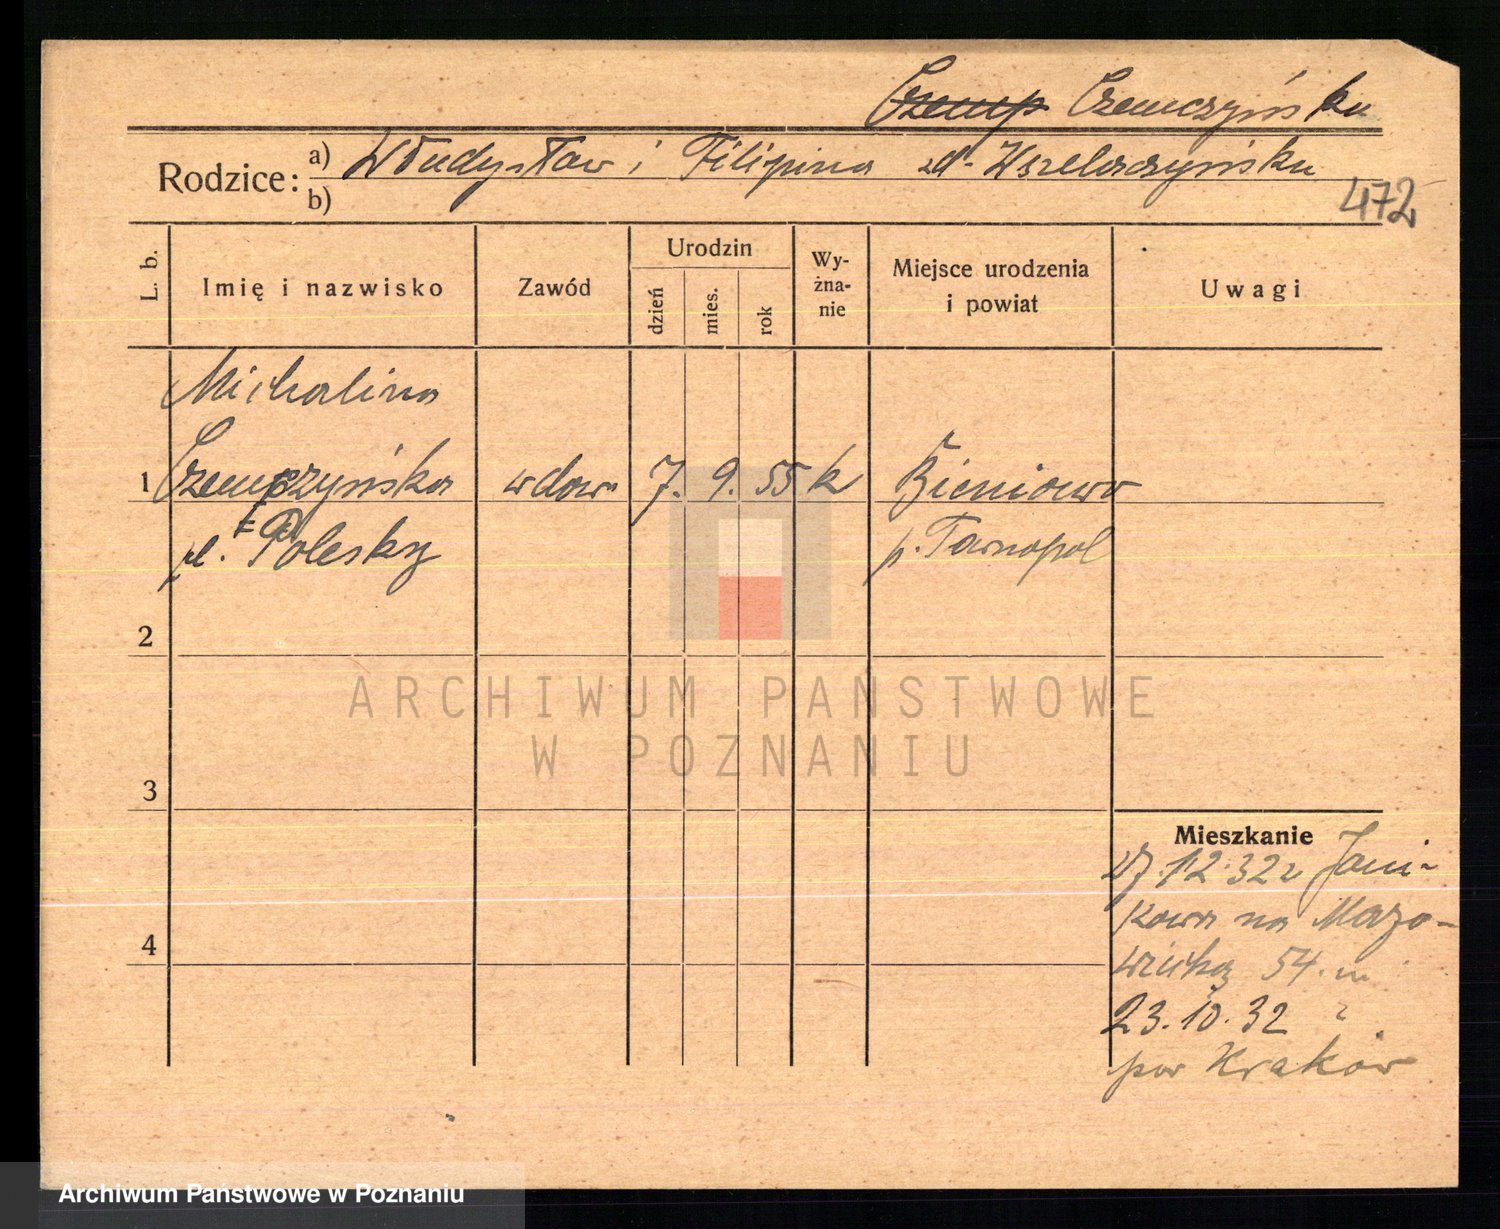 Czemp Czemczyńska
Rodzice: a) Władysław i Filipina zd. Wszelaczyńska
b)
472
L. b. Imię i nazwisko Zawód Urodzin dzień mies. rok Wyznanie Miejsce urodzenia i powiat Uwagi
Michalina
1 Czemczyńska wdowa 7. 9. 55 k Bieniowa
Polesky p. Tarnopol
2
ARCHIWUM PAŃSTWOWE
W POZNANIU
3
Mieszkanie
12.32 z Jani-
kowa na Mazo-
4
wiecką 54. m
23.10.32
pow Kraków
Archiwum Państwowe w Poznaniu